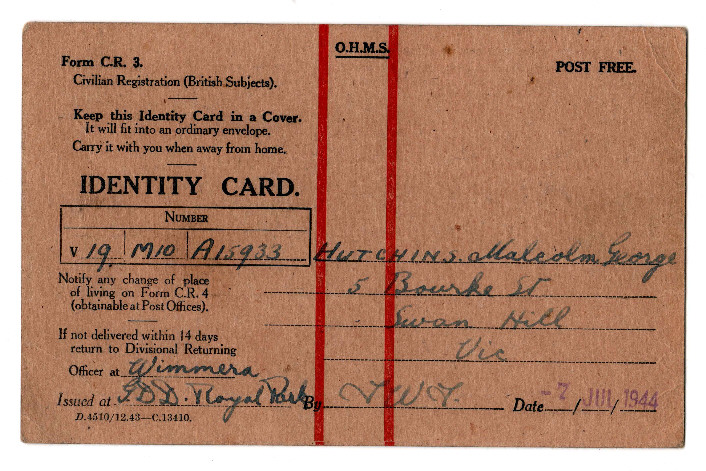 O.H.M.S.
Form C.R. 3.
POST FREE.
Civilian Registration (British Subjects).
Keep this Identity Card in a Cover.
It will fit into an ordinary envelope.
Carry it with you when away from home.
IDENTITY CARD.
NUMBER
V 19 M10 A15933
HUTCHINS. Malcolm George
5 Bourke St
Swan Hill
Vic
Notify any change of place
of living on Form C.R. 4
(obtainable at Post Offices).
If not delivered within 14 days
return to Divisional Returning
Officer at Wimmera
Issued at G.D.D. Royal Park By Date -7 / JUL / 1944
D.4510/12.43—C.13410.